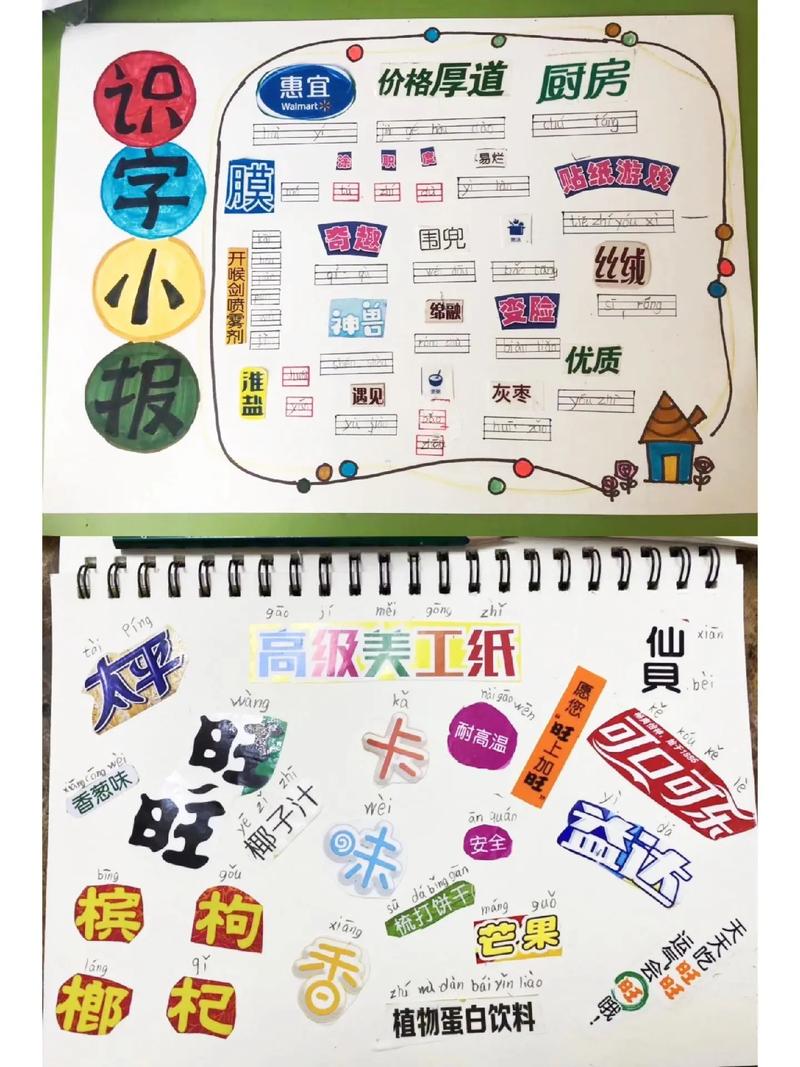 识
字
小
报
惠宜
Walmart
价格厚道
厨房
chú fáng
膜
mó
涂
职
tú
zhí
易烂
yì làn
贴纸游戏
tiē zhǐ yóu xì
奇趣
qí qù
围兜
wéi dōu
丝绒
sī róng
开喉剑喷雾剂
神兽
变脸
biàn liǎn
优质
yōu zhì
淮盐
遇见
yù jiàn
灰枣
huī zǎo
gāo jí měi gōng zhǐ
高级美工纸
tài píng
太平
仙貝
xiān
bèi
wàng
旺
旺
kǎ
卡
nài gāo wēn
耐高温
愿您"旺上加旺"
kě kǒu kě lè
可口可乐
xiāng cōng wèi
香葱味
yē zǐ zhī
椰子汁
wèi
味
ān quán
安全
yì dá
益达
bīng
槟
gǒu
枸
láng
榔
qǐ
杞
xiāng
香
sū dá bǐng gān
梳打饼干
máng guǒ
芒果
zhí wù dàn bái yǐn liào
植物蛋白饮料
天天吃
旺旺
运气会
旺
哦!